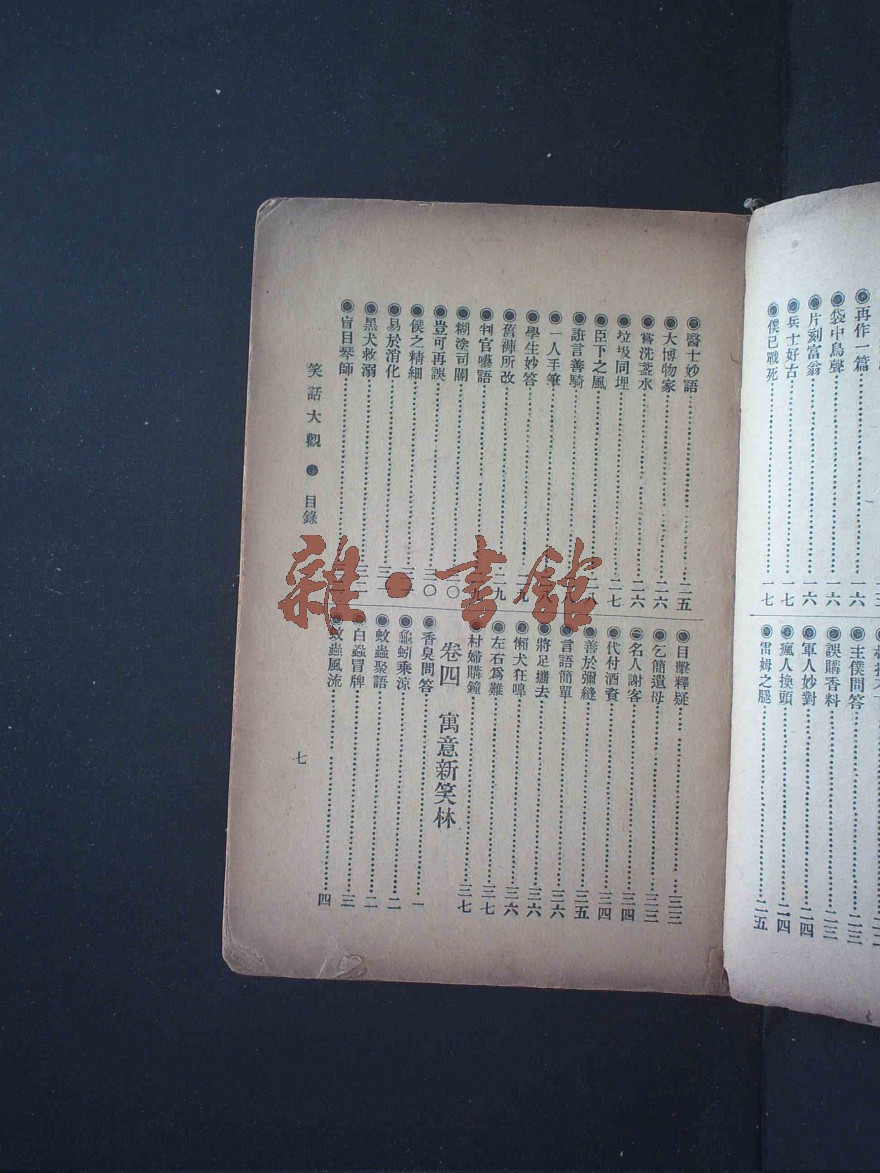 再作一篇……一六
袋中鳥聲……一六
片刻富翁……一六
兵士好古……一七
僕已戰死……一七
主僕問答……二三
誤購香料……二三
軍人妙對……二四
瘋人換頭……二四
雷姆之腿……二五
醫士妙語……二五
大博物家……二六
嘗洗盞水……二六
垃圾同埋……二七
臣下之風……二八
誑言善騎
一人手筆
學生妙答
舊褲所改……二九
判官囈語
糊塗司閽
豈可再誤……三〇
侯之精細
易於消化
黑犬救溺
盲目琴師
目擊釋疑……三三
乞簡遺母……三三
名人謝客……三四
代付酒資……三四
善於彌縫……三五
言語簡單……三六
將足擡去……三六
懶犬狂嘷……三六
左右爲難……三七
村婦購鐘……三七
卷四 寓意新笑林
香臭問答……一
龜蚓乘涼……二
蚊蟲聚語……二
白蝨冒牌……三
蚊蟲風流……四
笑話大觀 目錄
七
雜·書館